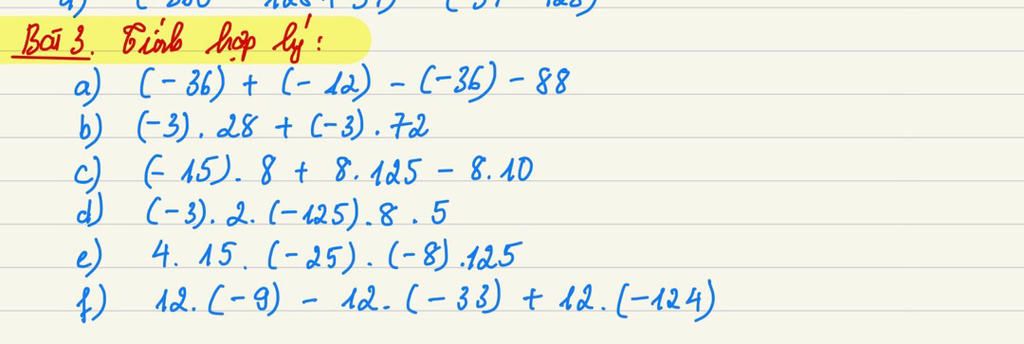 Bài 3. Tính hợp lý:
a) (- 36) + (- 12) - (-36) - 88
b) (-3) . 28 + (-3) . 72
c) (- 15) . 8 + 8 . 125 - 8 . 10
d) (-3) . 2 . (-125) . 8 . 5
e) 4 . 15 . (-25) . (-8) . 125
f) 12 . (-9) - 12 . (-33) + 12 . (-124)